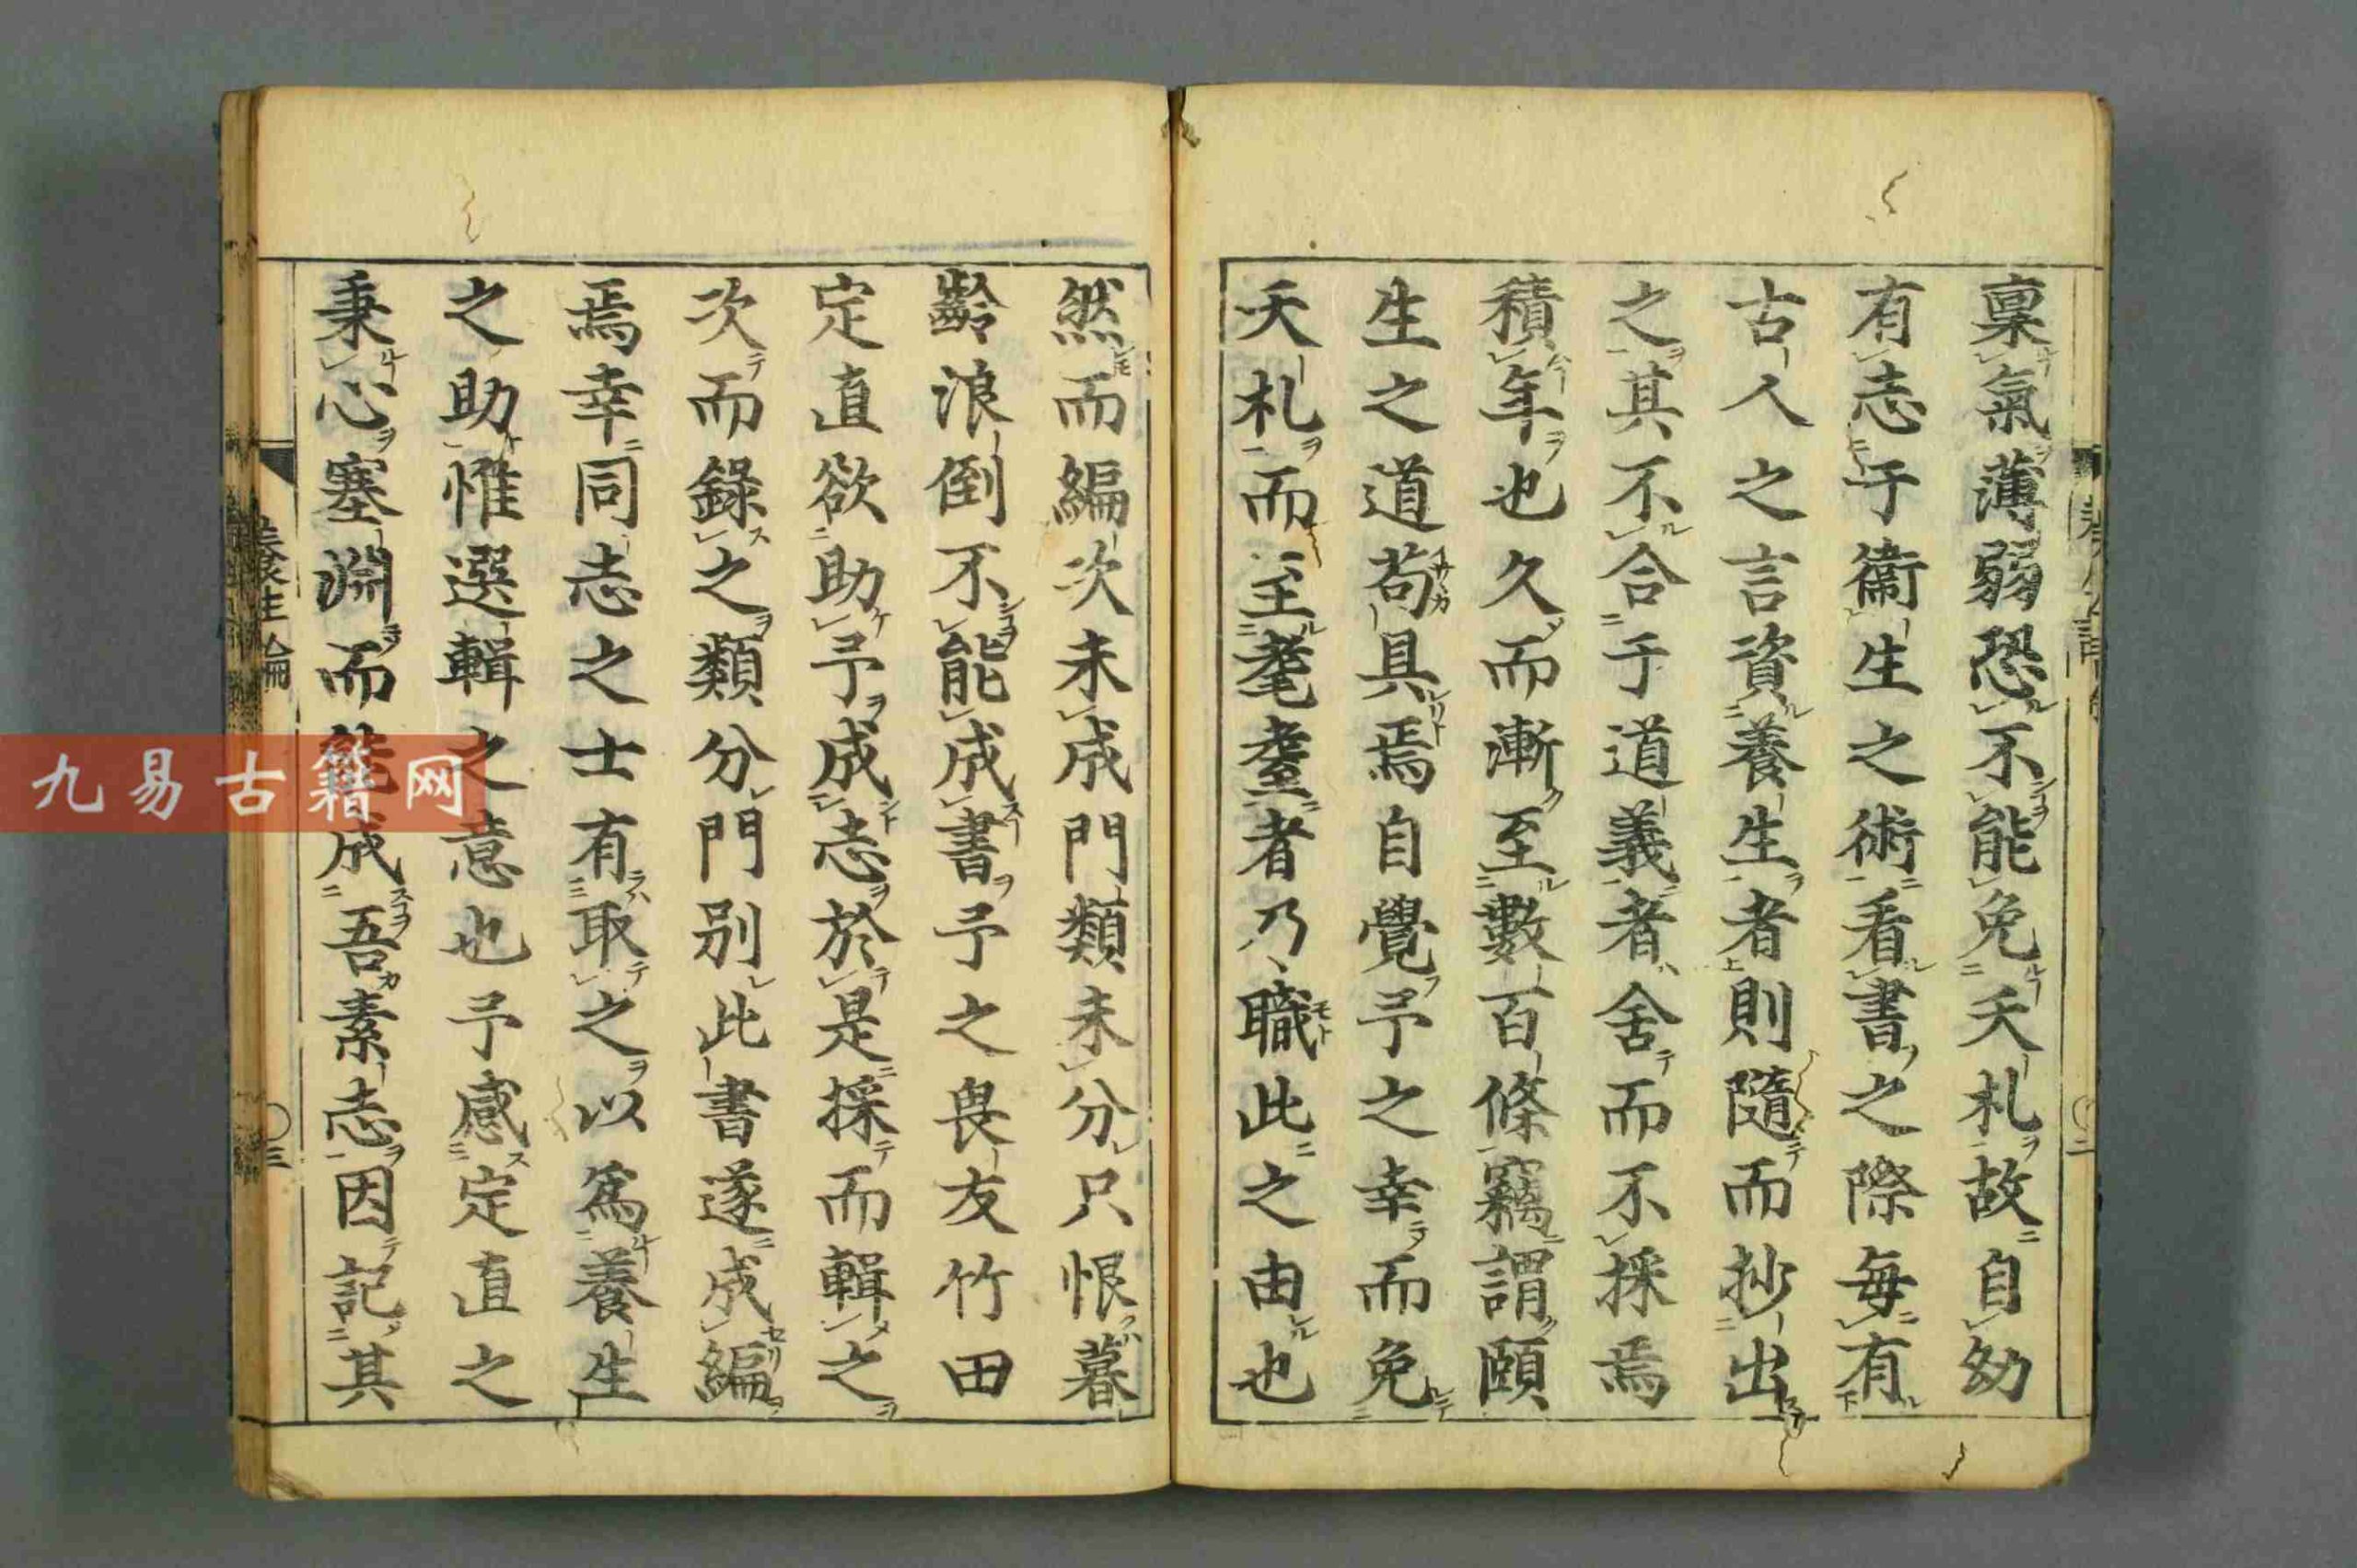 稟氣薄弱恐不能免夭札故自幼
有志于衞生之術看書之際每有
古人之言資養生者則隨而抄出
之其不合于道義者舍而不採焉
積年也久而漸至數百條竊謂頤
生之道苟具焉自覺予之幸而免
夭札而至耄耋者乃職此之由也
然而編次未成門類未分只恨暮
齡浪倒不能成書予之畏友竹田
定直欲助予成志於是採而輯之
次而錄之類分門別此書遂成編
焉幸同志之士有取之以爲養生
之助惟選輯之意也予感定直之
秉心塞淵而能成吾素志因記其
養生論
三
九易古籍网